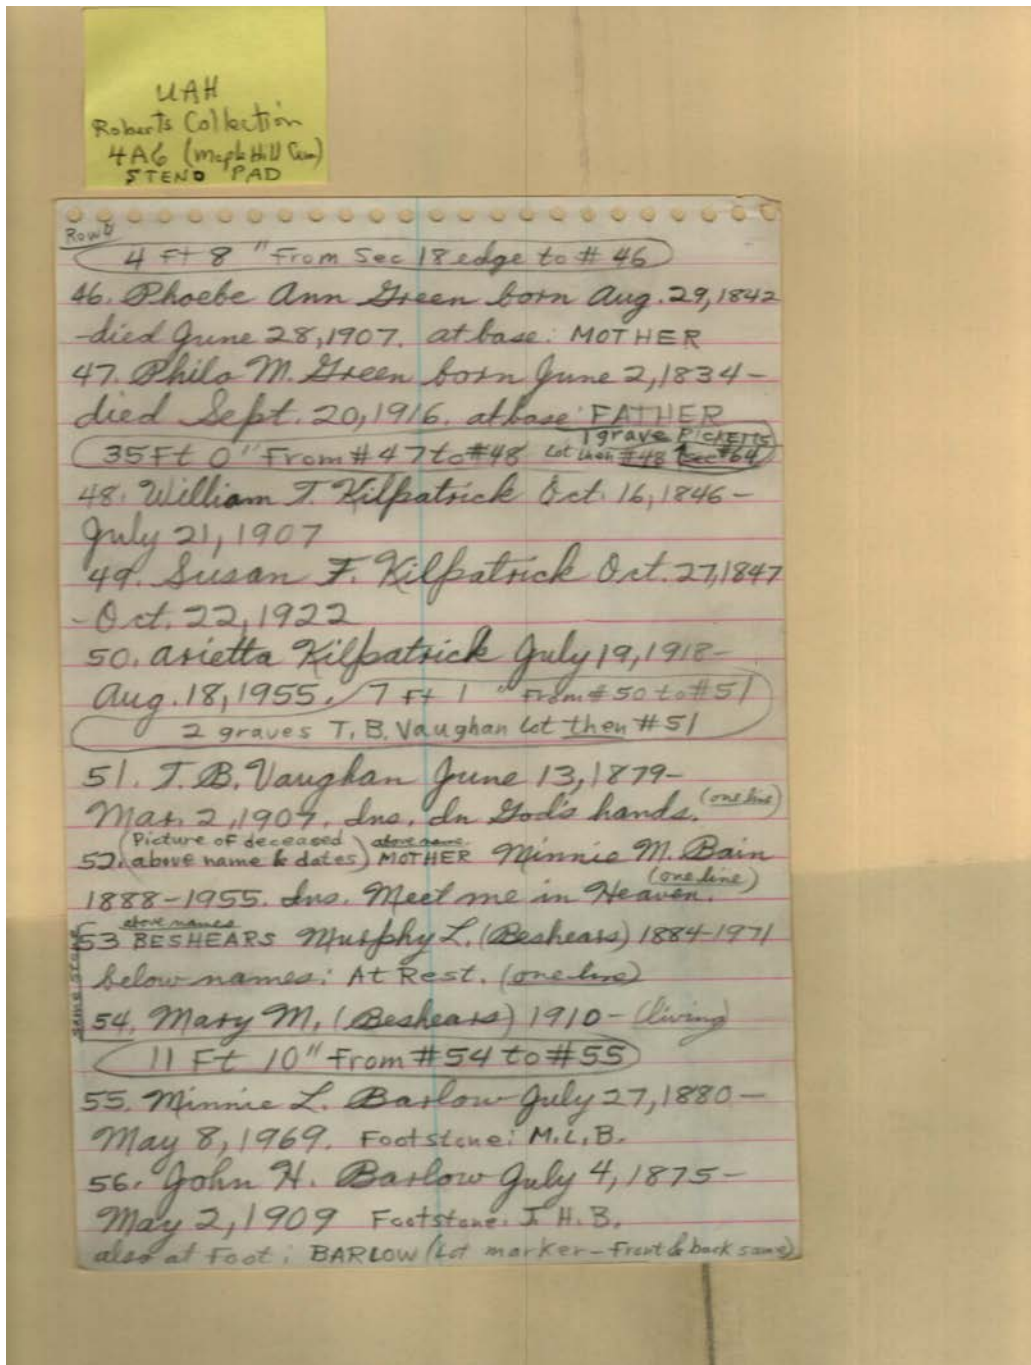 UAH
Roberts Collection
4A6 (Maple Hill Cem)
STENO PAD
Row
4 Ft 8" From Sec 18 edge to #46
46. Phoebe Ann Green born Aug. 29, 1842
-died June 28, 1907. at base: MOTHER
47. Philo M. Green born June 2, 1834-
died Sept. 20, 1916. at base: FATHER
1 grave PICKETTS
35 Ft 0" From #47 to #48 Lot then #48
48. William T. Kilpatrick Oct. 16, 1846-
July 21, 1907
49. Susan F. Kilpatrick Oct. 27, 1847
- Oct. 22, 1922
50. Arietta Kilpatrick July 19, 1918-
Aug. 18, 1955. 7 Ft 1" From #50 to #51
2 graves T. B. Vaughan Lot then #51
51. T. B. Vaughan June 13, 1879-
Mar. 2, 1907. Ins. In God's hands. (one line)
(Picture of deceased above name
52. above name & dates) MOTHER Minnie M. Bain
1888-1955. Ins. Meet me in Heaven. (one line)
above names
53 BESHEARS Murphy L. (Beshears) 1884-1971
below names: At Rest. (one line)
same stone
54. Mary M. (Beshears) 1910- (living)
11 Ft 10" From #54 to #55
55. Minnie L. Barlow July 27, 1880-
May 8, 1969. Footstone: M.L.B.
56. John H. Barlow July 4, 1875-
May 2, 1909 Footstone: J. H. B.
also at Foot: BARLOW (Lot marker - front & back same)